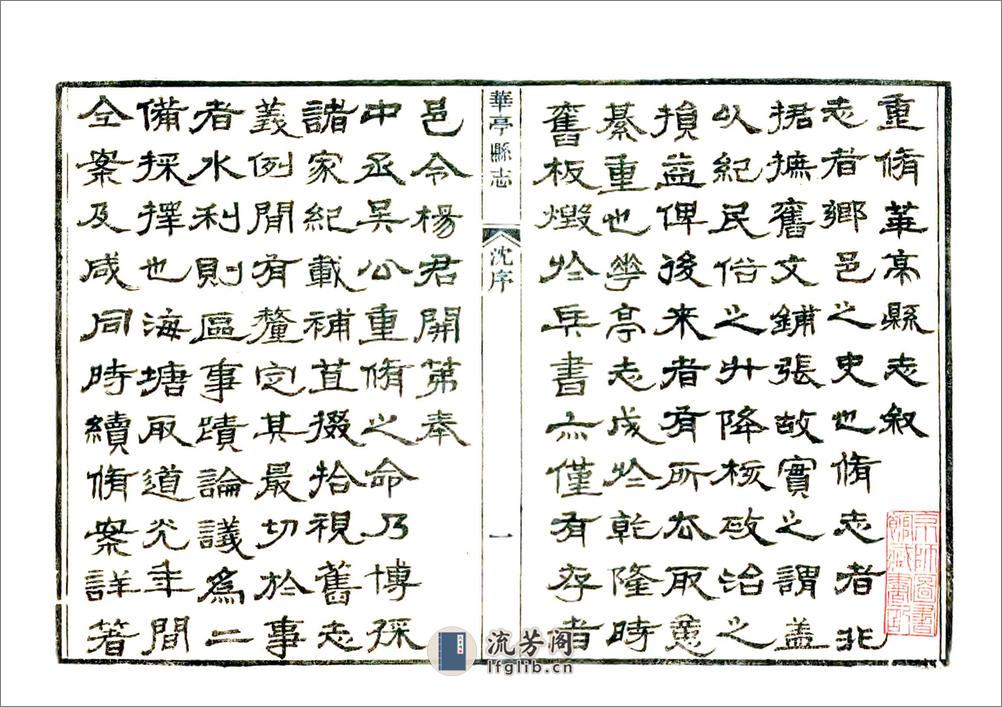 重脩華亭縣志叙
志者鄉邑之史也脩志者非
捃摭舊文鋪張故實之謂盖
以紀民俗之升降核政治之
損益俾後来者有所厺取意
綦重也華亭志成於乾隆時
舊板燬於兵書亦僅有存者
華亭縣志 沈序 一
邑令楊君開第奉
中丞吴公重脩之命乃博採
諸家紀載補苴掇拾視舊志
義例間有釐定其最切於事
者水利則區事蹟論議為二
備採擇也海塘取道光年間
全案及咸同時續脩案詳著
京師圖書
館藏書記
流芳阁
lfglib.cn